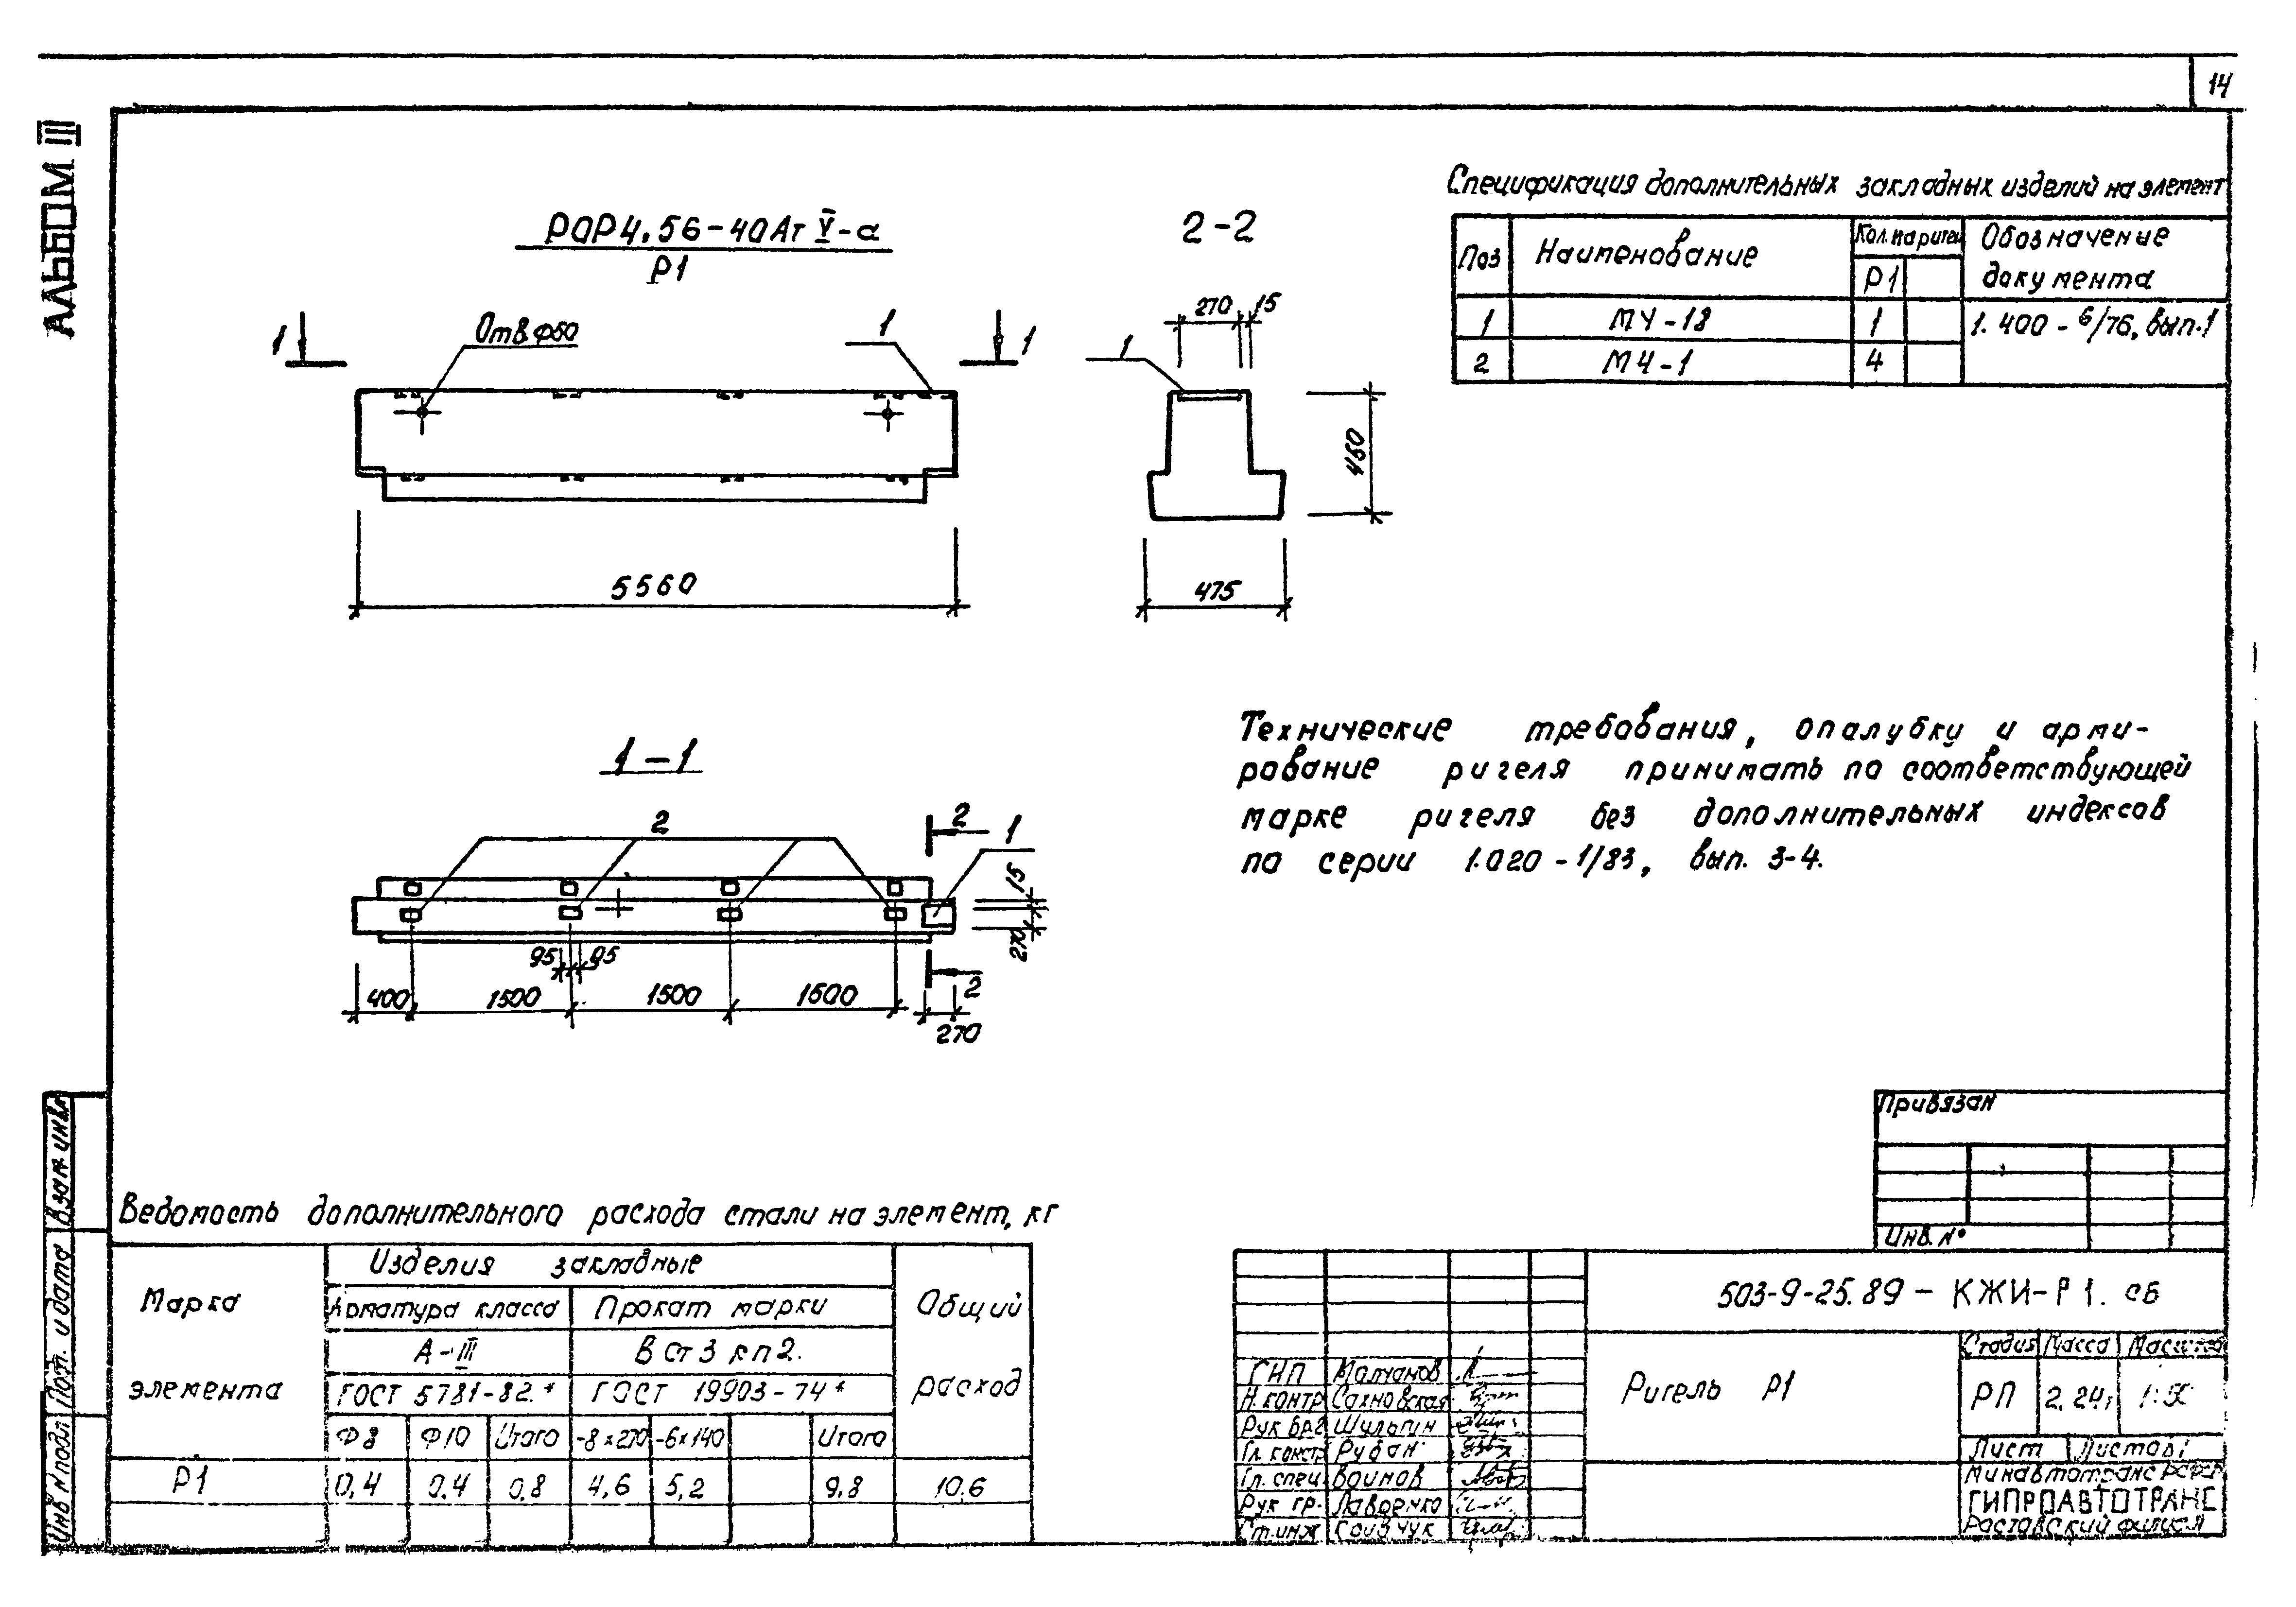 14
АЛЬБОМ III
РОР4.56-40Ат V-а
Р1
2-2
1
1
Отв.Ф50
1
1
270
15
460
5560
475
Спецификация дополнительных закладных изделий на элемент
Поз
Наименование
Кол. на ригель
Обозначение документа
Р1
1
МУ-18
1
1.400-6/76, вып.1
2
М4-1
4
1-1
2
2
1
15
270
95
95
400
1500
1500
1500
2
270
Технические требования, опалубку и арми-
рование ригеля принимать по соответствующей
марке ригеля без дополнительных индексов
по серии 1.020-1/83, вып. 3-4.
Ведомость дополнительного расхода стали на элемент, кг
Марка элемента
Изделия закладные
Общий расход
Арматура класса
Прокат марки
А-III
В Ст 3 кп 2.
ГОСТ 5781-82.*
ГОСТ 19903-74*
Ф8
Ф10
Итого
-8х270
-6х140
Итого
Р1
0,4
0,4
0,8
4,6
5,2
9,8
10,6
Взам инв
Подп. и дата
Инв N подл
Привязан
Инв. N°
503-9-25.89 - КЖИ-Р1. СБ
ГИП
Молчанов
Н.контр
Сахновская
Рук бр.2
Шульгин
Гл. констр
Рубан
Гл. спец
Воинов
Рук гр.
Лавренко
Ст.инж
Ригель Р1
Стадия
Масса
Масштаб
РП
2,24т
1:50
Лист
Листов 1
Минавтотранс РСФСР
ГИПРОАВТОТРАНС
Ростовский филиал